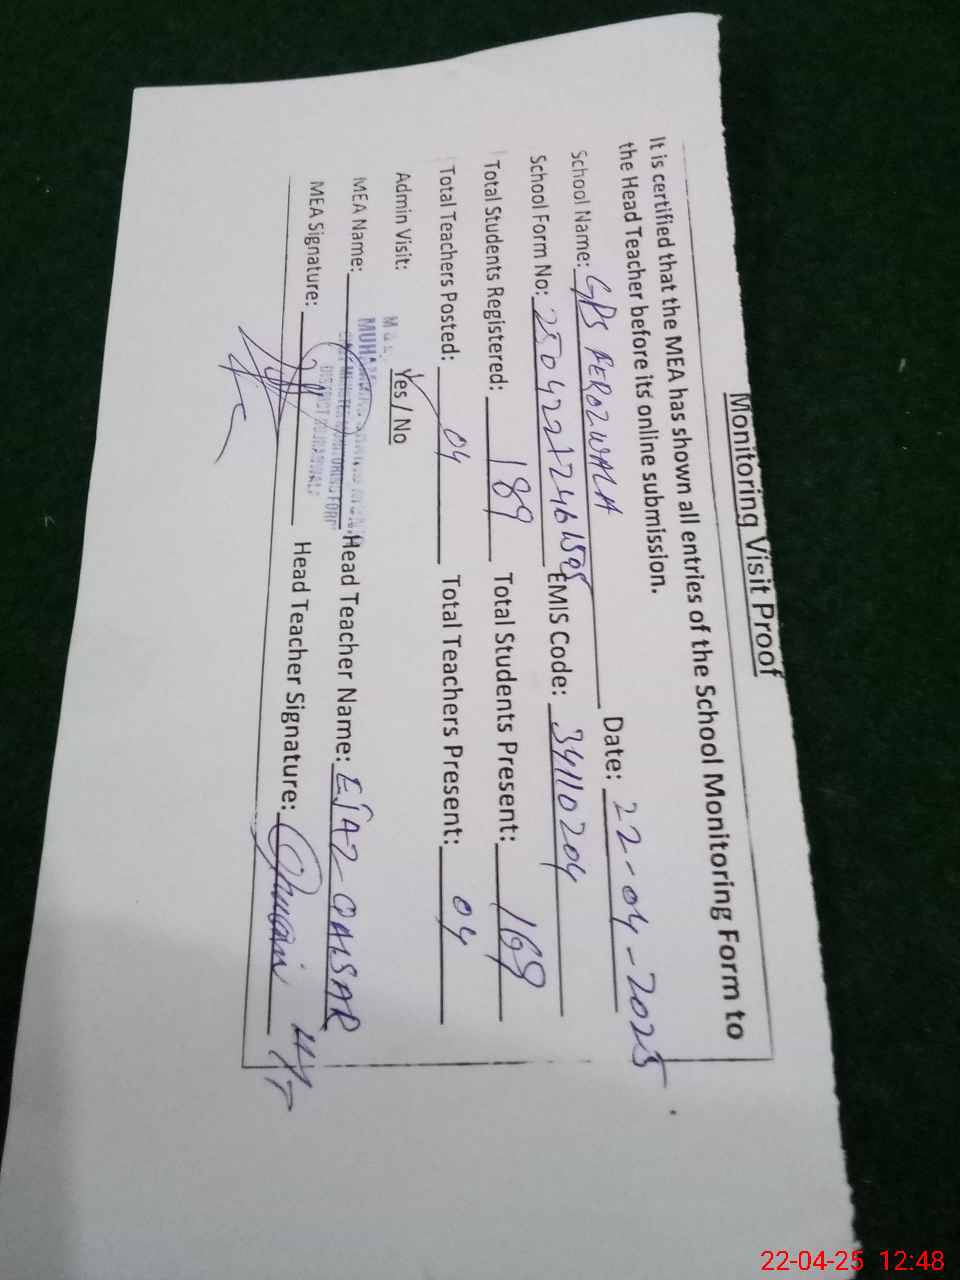 Monitoring Visit Proof
It is certified that the MEA has shown all entries of the School Monitoring Form to
the Head Teacher before its online submission.
School Name: GPS FEROZWALA Date: 22-04-2025
School Form No: EMIS Code: 34110204
Total Students Registered: 189 Total Students Present: 169
Total Teachers Posted: 04 Total Teachers Present: 04
Admin Visit: Yes / No
MEA Name: Head Teacher Name: EJAZ QAISAR
MEA Signature: Head Teacher Signature:
DISTRICT
22-04-25 12:48